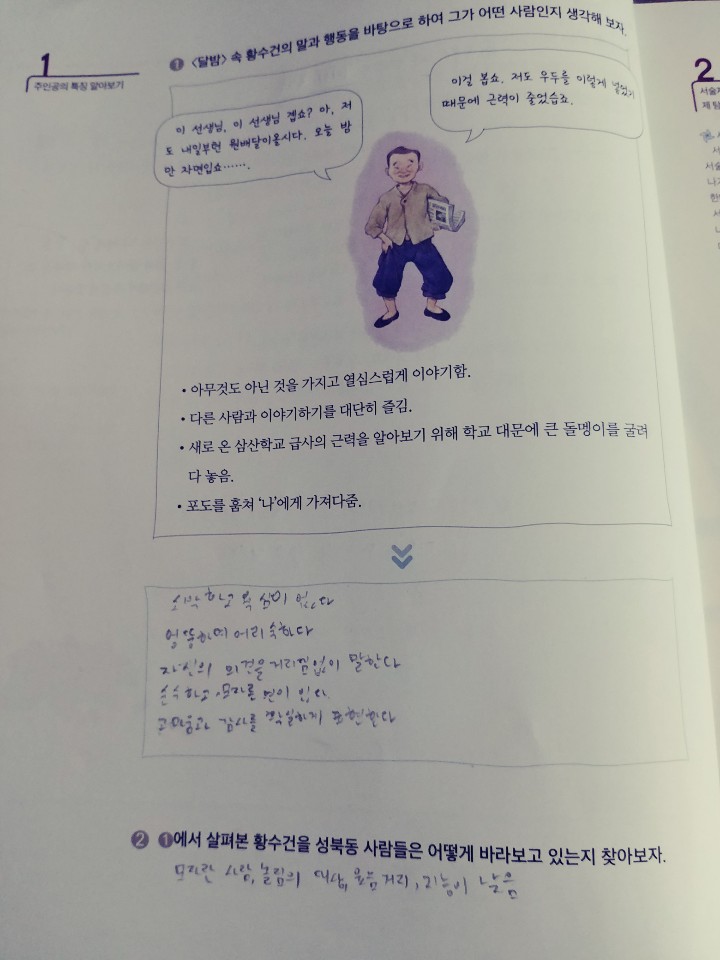 1
주인공의 특징 알아보기
❶ 〈달밤〉 속 황수건의 말과 행동을 바탕으로 하여 그가 어떤 사람인지 생각해 보자.
이 선생님, 이 선생님 곕쇼? 아, 저
도 내일부턴 원배달이올시다. 오늘 밤
만 자면입쇼…….
이걸 봅쇼. 저도 우두를 이렇게 넣었기
때문에 근력이 줄었습죠.
• 아무것도 아닌 것을 가지고 열심스럽게 이야기함.
• 다른 사람과 이야기하기를 대단히 즐김.
• 새로 온 삼산학교 급사의 근력을 알아보기 위해 학교 대문에 큰 돌멩이를 굴려
다 놓음.
• 포도를 훔쳐 '나'에게 가져다줌.
소박하고 욕심이 없다
엉뚱하며 어리숙하다
자신의 의견을 거리낌없이 말한다
순수하고 모자른 면이 있다.
고마움과 감사를 확실하게 표현한다
❷ ❶에서 살펴본 황수건을 성북동 사람들은 어떻게 바라보고 있는지 찾아보자.
모자란 사람, 놀림의 대상, 웃음거리, 지능이 낮음
2